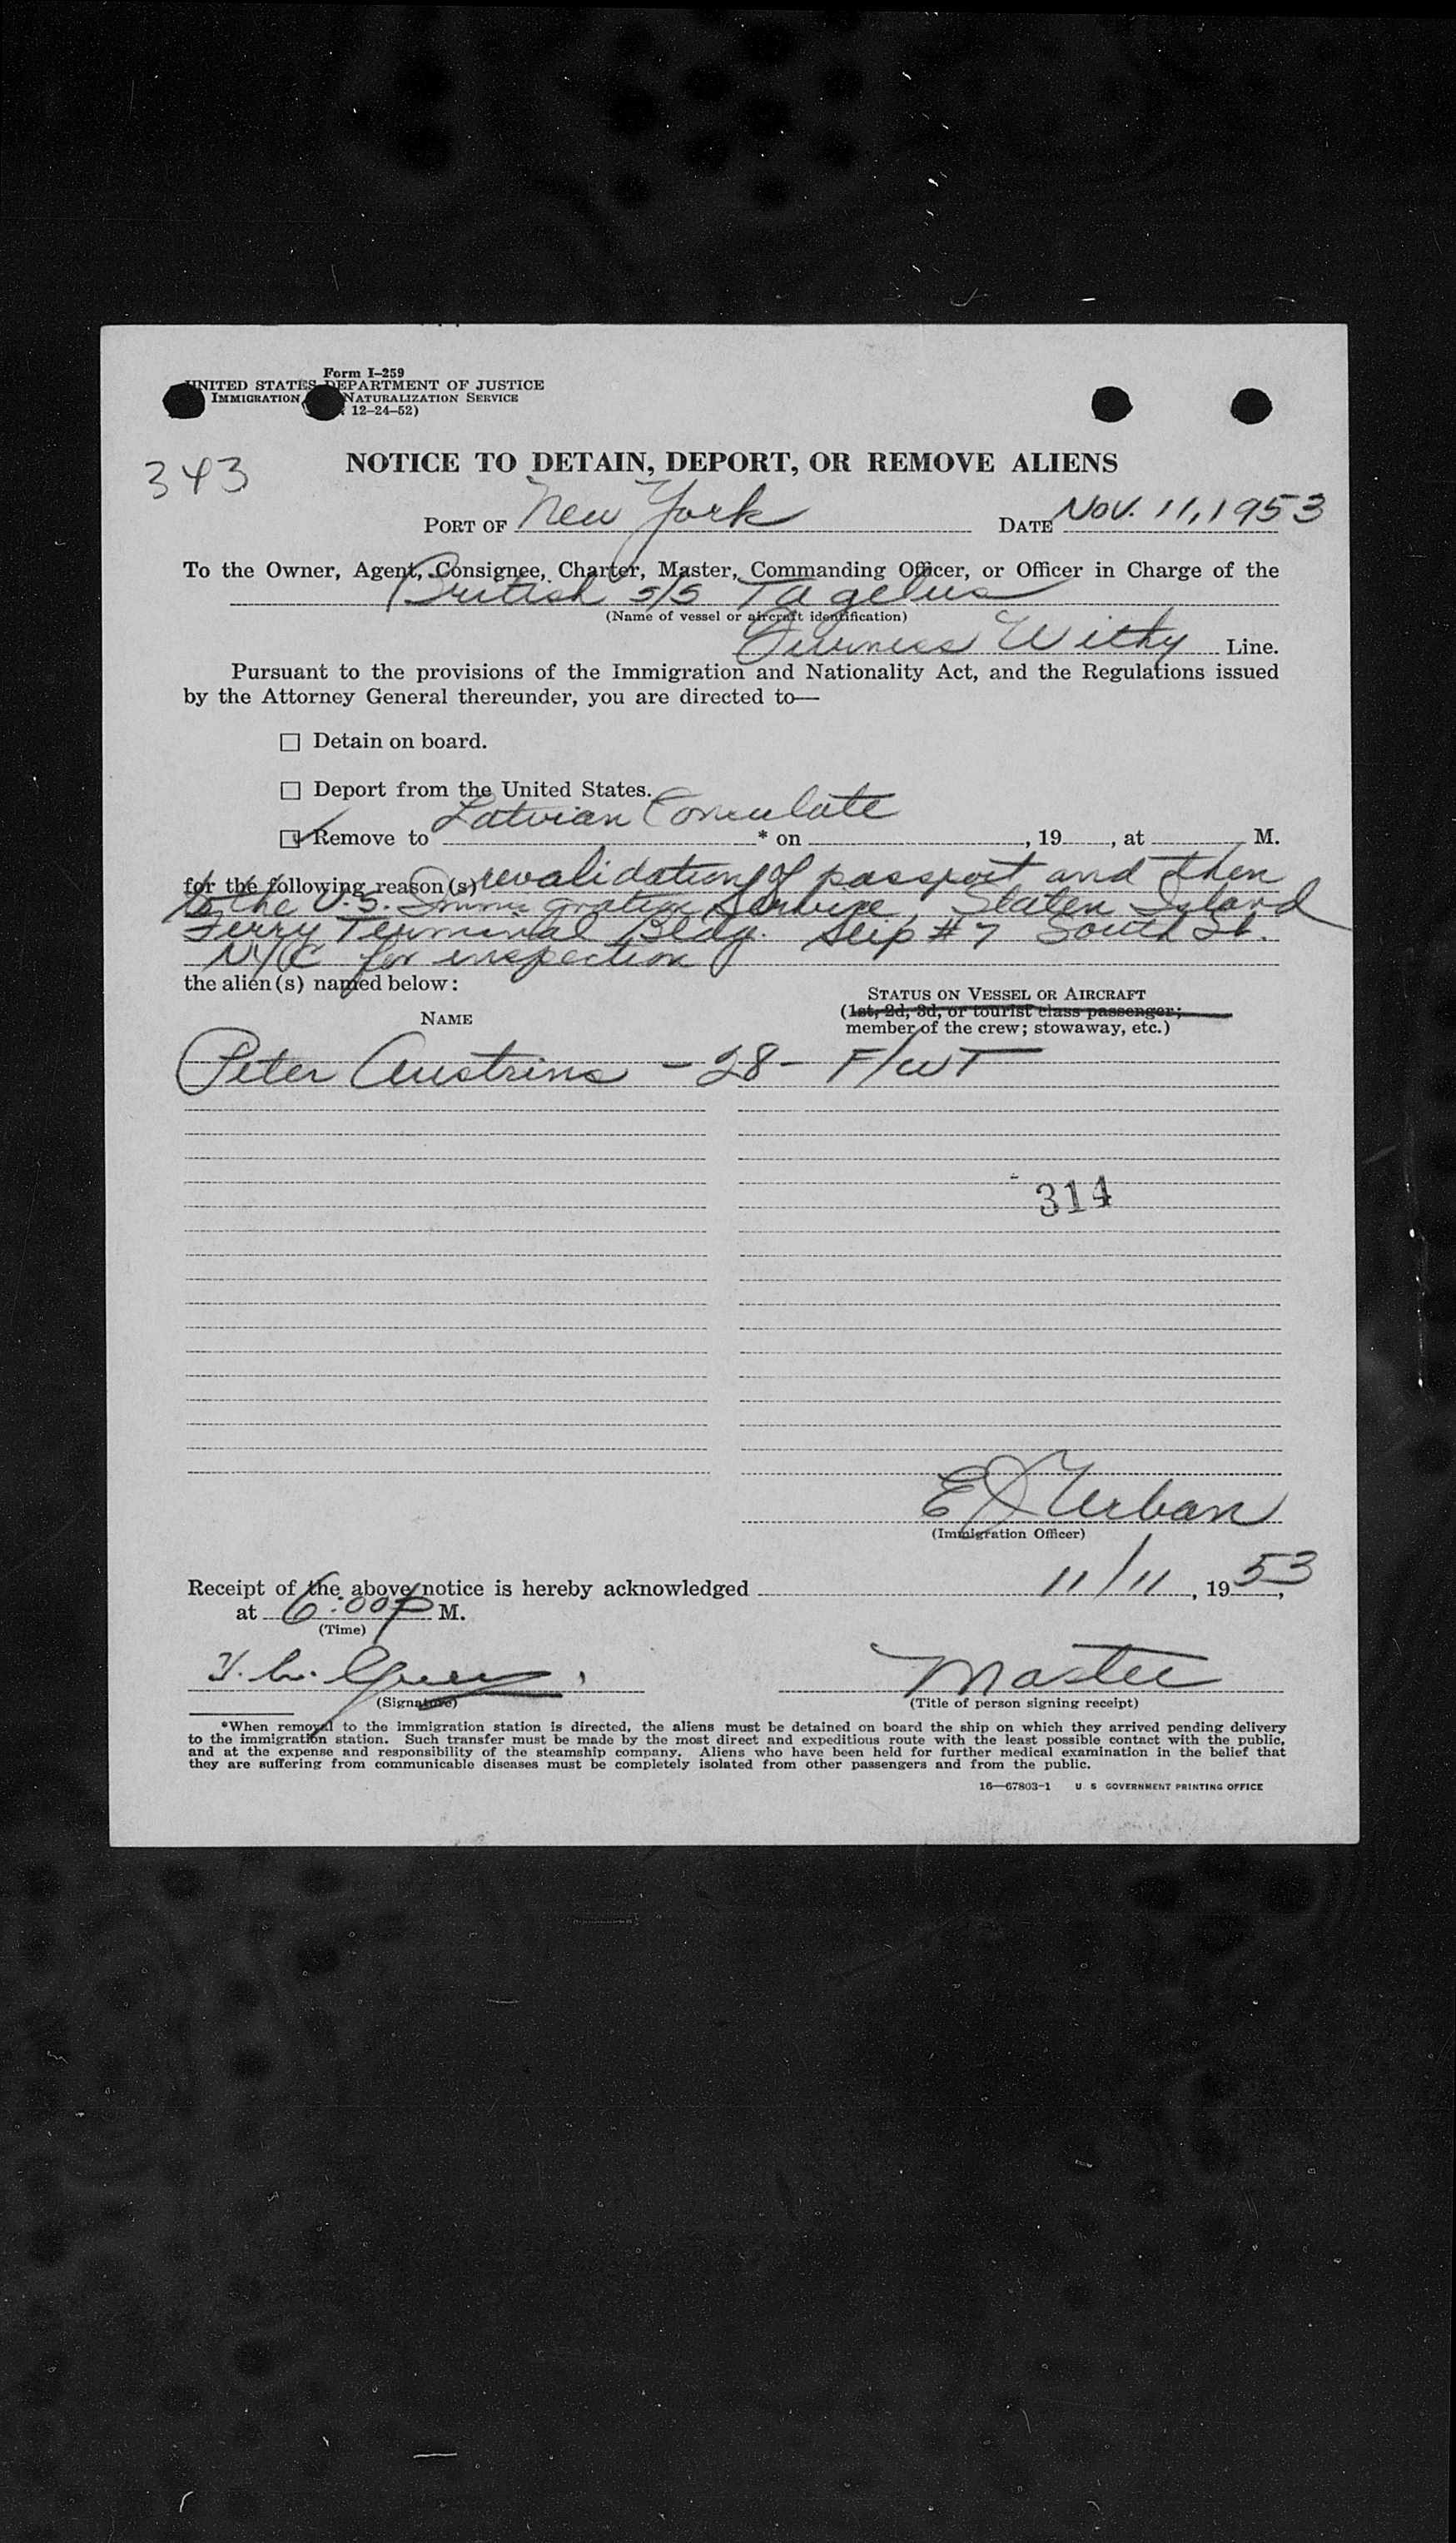 Form I-259
UNITED STATES DEPARTMENT OF JUSTICE
IMMIGRATION NATURALIZATION SERVICE
12-24-52)
343
NOTICE TO DETAIN, DEPORT, OR REMOVE ALIENS
PORT OF New York DATE Nov. 11, 1953
To the Owner, Agent, Consignee, Charter, Master, Commanding Officer, or Officer in Charge of the
British s/s Tagelus
(Name of vessel or aircraft identification)
Furness Withy Line.
Pursuant to the provisions of the Immigration and Nationality Act, and the Regulations issued
by the Attorney General thereunder, you are directed to—
☐ Detain on board.
☐ Deport from the United States.
☑ Remove to Latvian Consulate * on , 19 , at M.
for the following reason(s) revalidation of passport and then
to the U.S. Immigration Service, Staten Island
Ferry Terminal Bldg. Slip #7 South St.
NYC for inspection
the alien(s) named below:
STATUS ON VESSEL OR AIRCRAFT
NAME (1st, 2d, 3d, or tourist class passenger;
member of the crew; stowaway, etc.)
Peter Austrins - 28 - F/WT
314
E J Urban
(Immigration Officer)
Receipt of the above notice is hereby acknowledged 11/11, 1953,
at 6:00 P M.
(Time)
Master
(Signature) (Title of person signing receipt)
*When removal to the immigration station is directed, the aliens must be detained on board the ship on which they arrived pending delivery
to the immigration station. Such transfer must be made by the most direct and expeditious route with the least possible contact with the public,
and at the expense and responsibility of the steamship company. Aliens who have been held for further medical examination in the belief that
they are suffering from communicable diseases must be completely isolated from other passengers and from the public.
16—67803-1 U. S GOVERNMENT PRINTING OFFICE